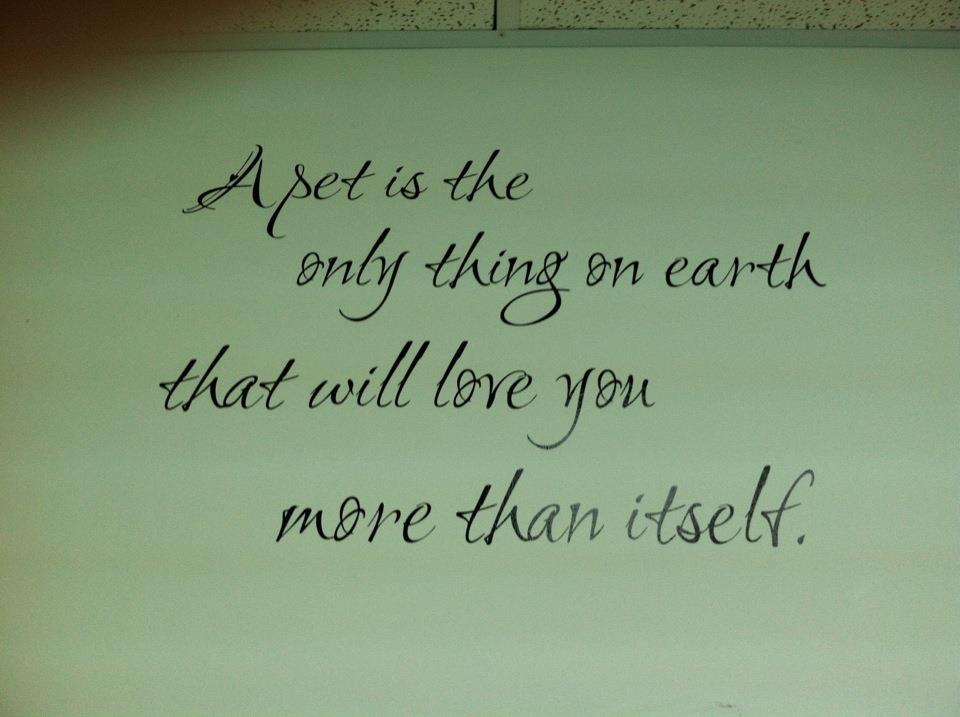 A pet is the
only thing on earth
that will love you
more than itself.